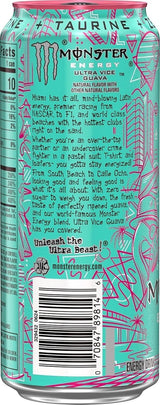 TAURINE +
MONSTER
ENERGY
ULTRA VICE
GUAVA
NATURAL FLAVOR WITH
OTHER NATURAL FLAVORS
Miami has it all, mind-blowing Latin
energy, premier racing from
NASCAR to F1, and world class
beaches with the hottest clubs
right on the sand.
Whether you're an over-the-top
partier or an undercover crime
fighter in a pastel suit T-shirt, and
loafers you gotta stay energized.
From South Beach to Calle Ocho,
looking good and feeling good is
what it's all about with zero
sugar to weigh you down. The fresh
taste of perfectly ripened guava
and our world-famous Monster
Energy blend, Ultra Vice Guava
has you covered.
Unleash the
Ultra Beast!
monsterenergy.com
0 70847 89814 6
ENERGY DR